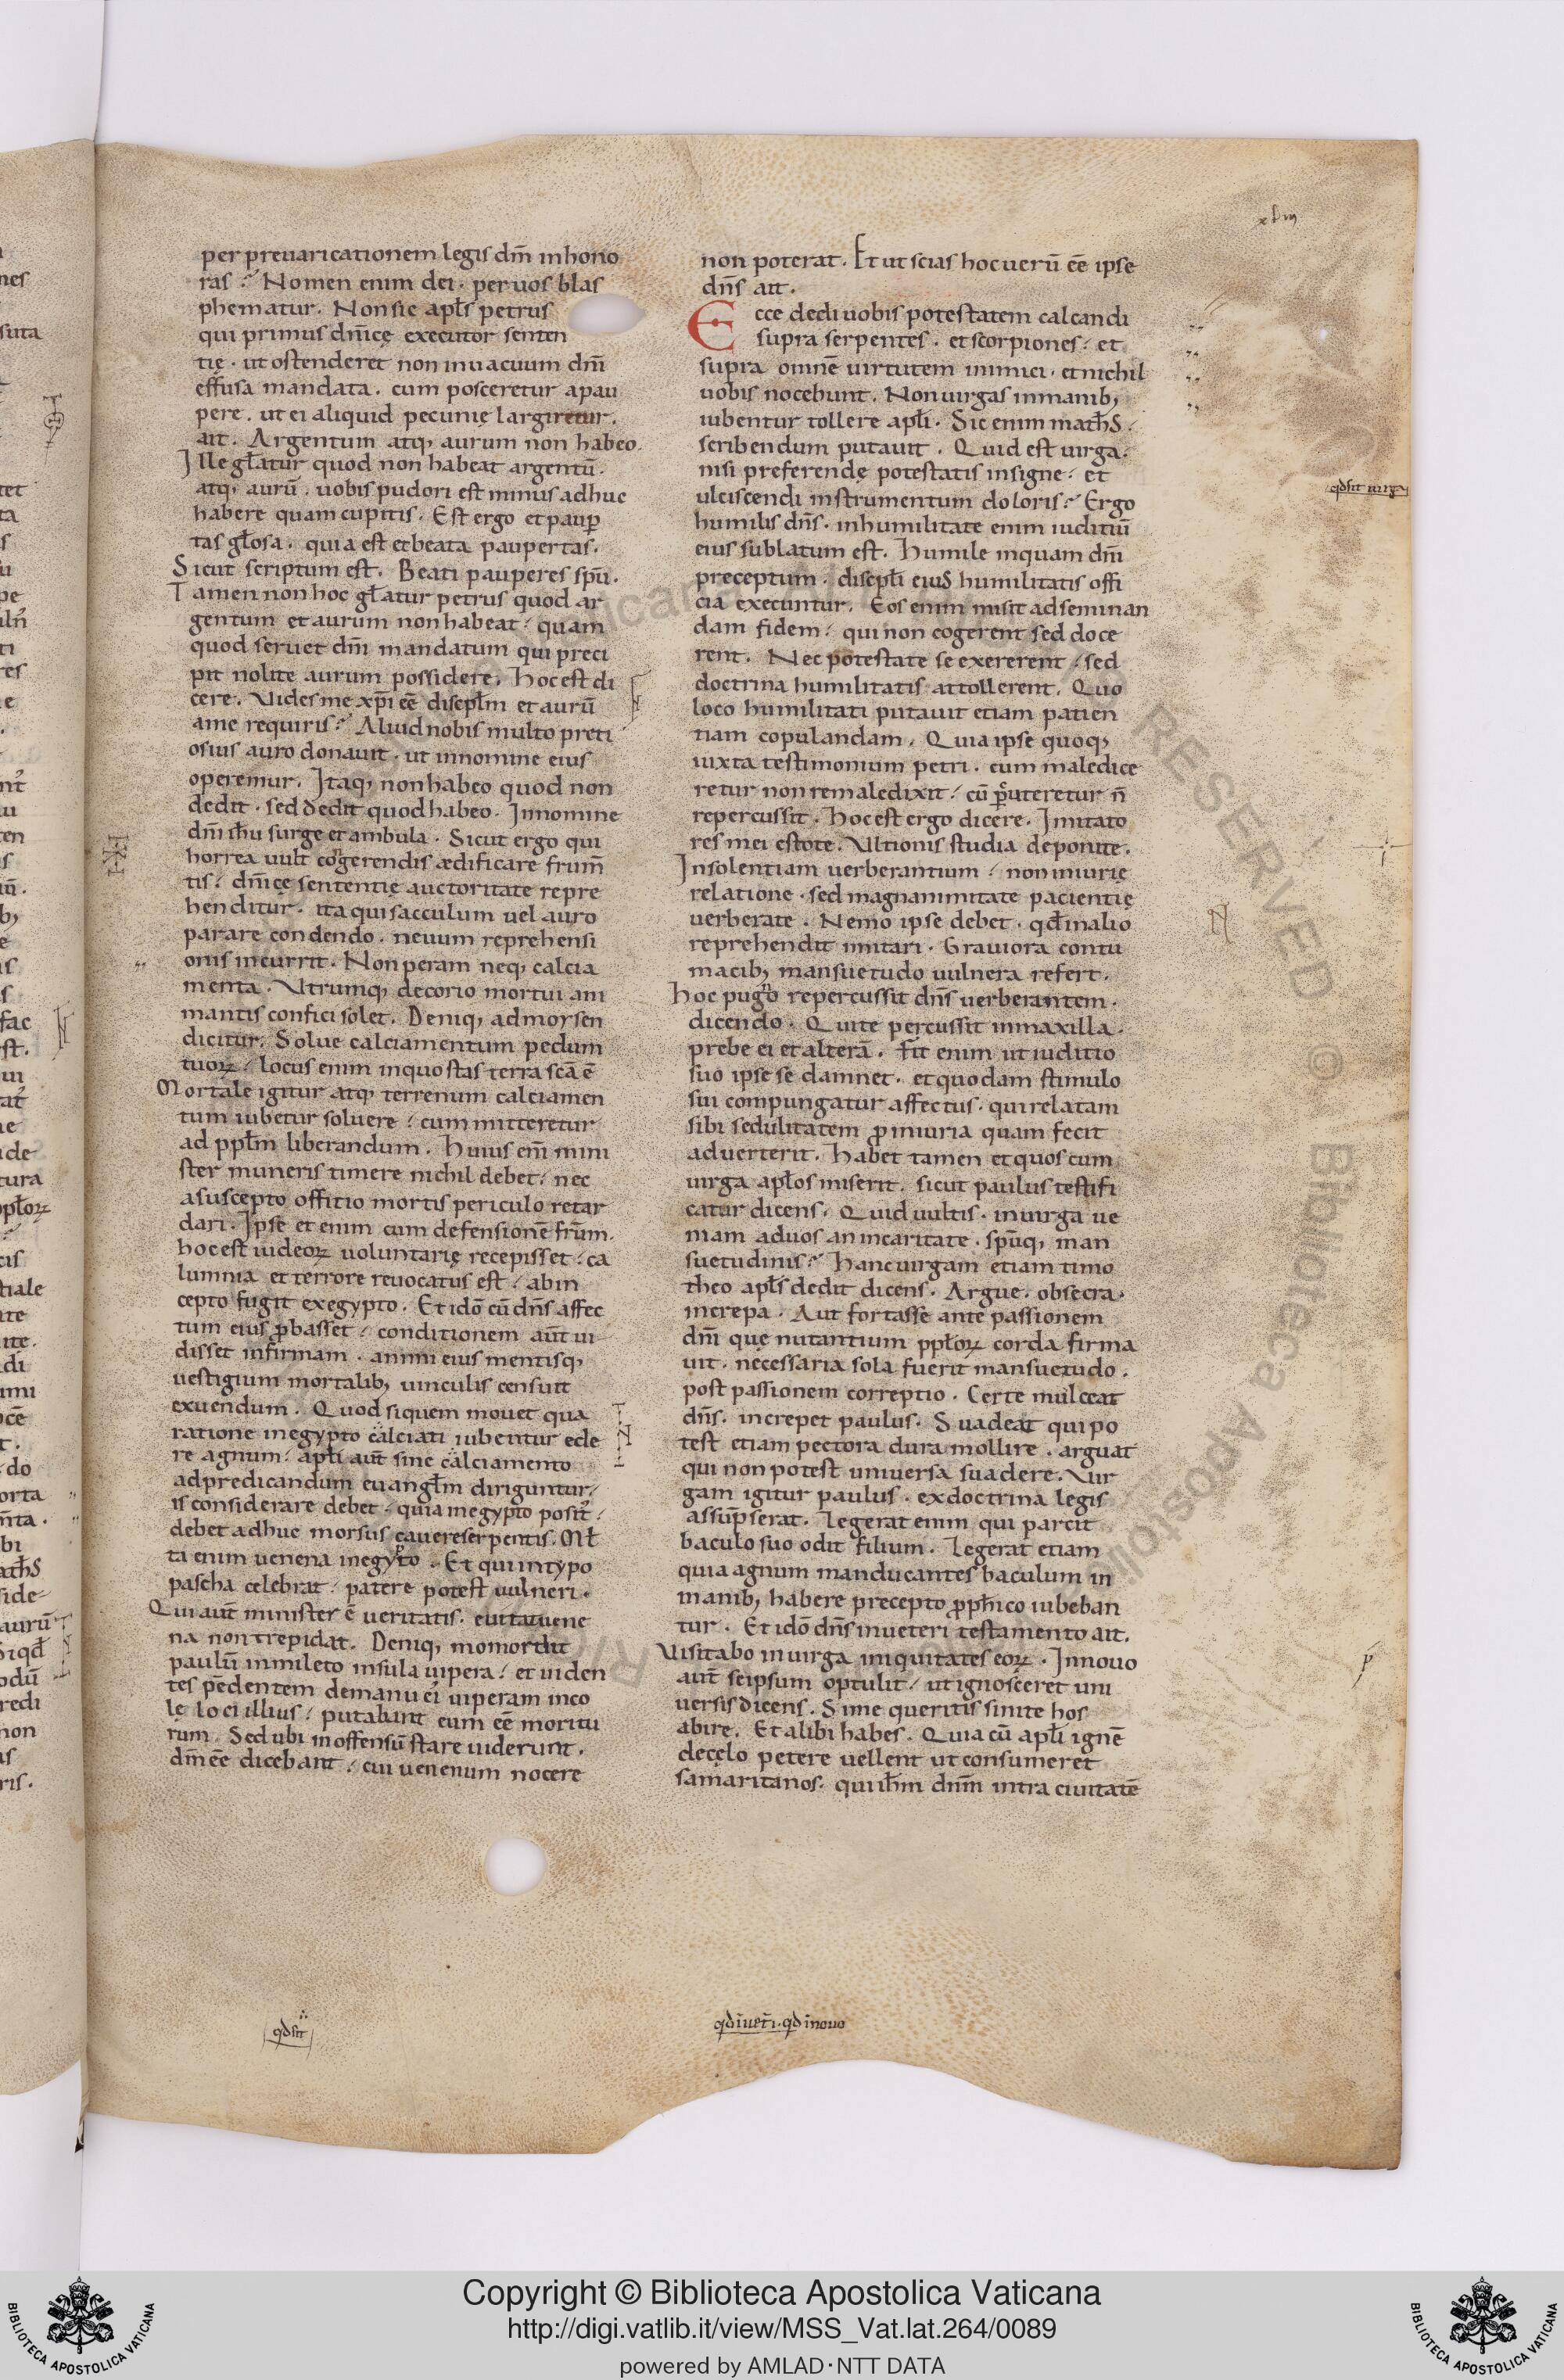 xlm
per preuaricationem legis dm̄ inhono
ras? Nomen enim dei. per uos blas
phematur. Non sic apl̄s petrus
qui primus dm̄icę executor senten
tię. ut ostenderet non in uacuum dm̄i
effusa mandata. cum posceretur a pau
pere. ut ei aliquid pecunię largiretur.
ait. Argentum atq; aurum non habeo.
Ille gl̄atur quod non habeat argentū.
atq; aurū. uobis pudori est minus adhuc
habere quam cupitis. Est ergo et paup̱
tas gl̄osa. quia est et beata paupertas.
Sicut scriptum est. Beati pauperes spū.
Tamen non hoc gl̄atur petrus quod ar
gentum et aurum non habeat. quam
quod seruet dm̄i mandatum qui preci
pit nolite aurum possidere. Hoc est di
cere. Vides me xp̄i eē discpl̄m et aurū
a me requiris? Aliud nobis multo preti
osius auro donauit. ut in nomine eius
operemur. Itaq; non habeo quod non
dedit. sed dedit quod habeo. In nomine
dm̄i ih̄u surge et ambula. Sicut ergo qui
horrea uult congerendis ædificare frum̄
tis. dm̄icę sententię auctoritate repre
henditur. ita qui sacculum uel auro
parare condendo. neuum reprehensi
onis incurrit. Non peram neq; calcia
menta. Vtrumq; de corio mortui ani
mantis confici solet. Deniq; ad moysen
dicitur. Solue calciamentum pedum
tuorꝝ. locus enim in quo stas terra scā ē
Mortale igitur atq; terrenum calciamen
tum iubetur soluere. cum mitteretur
ad ppl̄m liberandum. Huius eni mini
ster muneris timere nichil debet. nec
a suscepto offitio mortis periculo retar
dari. Ipse etenim cum defensionē frum̄.
hoc est iudeorꝝ uoluntarię recepisset. ca
lumnia et terrore reuocatus est. ab in
cepto fugit ex egypto. Et idō cū dn̄s affec
tum eius ꝓbasset. conditionem aut̄ ui
disset infirmam. animi eius mentisq;
uestigium mortalib; uinculis censuit
exuendum. Quod si quem mouet qua
ratione in egypto calciati iubentur ede
re agnum. apl̄i aut̄ sine calciamento
ad predicandum euangl̄m diriguntur.
is considerare debet. quia in egypto posit᾽.
debet adhuc morsus cauere serpentis. Ml̄
ta enim uenena in egypto. Et qui in typo
pascha celebrat. patere potest uulneri.
Qui aut̄ minister ē ueritatis. euitat uene
na non trepidat. Deniq; momordit
paulū in mileto insula uipera. et uiden
tes pendentem de manu ei᾽ uiperam inco
lę loci illius. putabant eum eē moritu
rum. Sed ubi inoffensū stare uiderunt.
dm̄ eē dicebant. cui uenenum nocere
non poterat. Et ut scias hoc uerū eē ipse
dn̄s ait.
Ecce dedi uobis potestatem calcandi
supra serpentes. et scorpiones. et
supra omnē uirtutem inimici. et nichil
uobis nocebunt. Non uirgas in manib;
iubentur tollere apl̄i. Sic enim math̄s.
scribendum putauit. Quid est uirga.
nisi preferendę potestatis insigne. et
ulciscendi instrumentum doloris? Ergo
humilis dn̄s. in humilitate enim iuditiū
eius sublatum est. Humile inquam dm̄i
preceptum. discpl̄i eius humilitatis offi
cia execuntur. Eos enim misit ad seminan
dam fidem. qui non cogerent sed doce
rent. Nec potestate se exererent. sed
doctrina humilitatis attollerent. Quo
loco humilitati putauit etiam patien
tiam copulandam. Quia ipse quoq;
iuxta testimonium petri. cum maledice
retur non remaledixit. cū ꝑcuteretur n̄
repercussit. Hoc est ergo dicere. Imitato
res mei estote. Vltionis studia deponite.
Insolentiam uerberantium. non iniurię
relatione. sed magnanimitate pacientię
uerberate. Nemo ipse debet. qđ in alio
reprehendit imitari. Grauiora contu
macib; mansuetudo uulnera refert.
Hoc pugno repercussit dn̄s uerberantem.
dicendo. Qui te percussit in maxilla.
prebe ei et alterā. Fit enim ut iuditio
suo ipse se damnet. et quodam stimulo
sui compungatur affectus. qui relatam
sibi sedulitatem ꝓ iniuria quam fecit
aduerterit. Habet tamen et quos cum
uirga apl̄os miserit. sicut paulus testifi
catur dicens. Quid uultis. in uirga ue
niam ad uos an in caritate. spūq; man
suetudinis? Hanc uirgam etiam timo
theo apl̄s dedit dicens. Argue. obsecra.
increpa. Aut fortasse ante passionem
dm̄i quę nutantium pplōrꝝ corda firma
uit. necessaria sola fuerit mansuetudo.
post passionem correptio. Certe mulceat
dn̄s. increpet paulus. Suadeat qui po
test etiam pectora dura mollire. arguat
qui non potest uniuersa suadere. Vir
gam igitur paulus. ex doctrina legis
assūpserat. Legerat enim qui parcit
baculo suo odit filium. Legerat etiam
quia agnum manducantes baculum in
manib; habere precepto ꝓph̄ico iubeban
tur. Et idō dn̄s in ueteri testamento ait.
Visitabo in uirga iniquitates eorꝝ. In nouo
aut̄ seipsum optulit. ut ignosceret uni
uersis dicens. Si me queritis sinite hos
abire. Et alibi habes. Quia cū apl̄i ignē
de cęlo petere uellent ut consumeret
samaritanos. qui ih̄m dnm̄ intra ciuitatē
qd sit uirga
N
qd sit
qd i uet̄i. qd i nouo
RESERVED © Biblioteca Apostolica
Copyright © Biblioteca Apostolica Vaticana
http://digi.vatlib.it/view/MSS_Vat.lat.264/0089
powered by AMLAD·NTT DATA
BIBLIOTECA APOSTOLICA VATICANA
BIBLIOTECA APOSTOLICA VATICANA